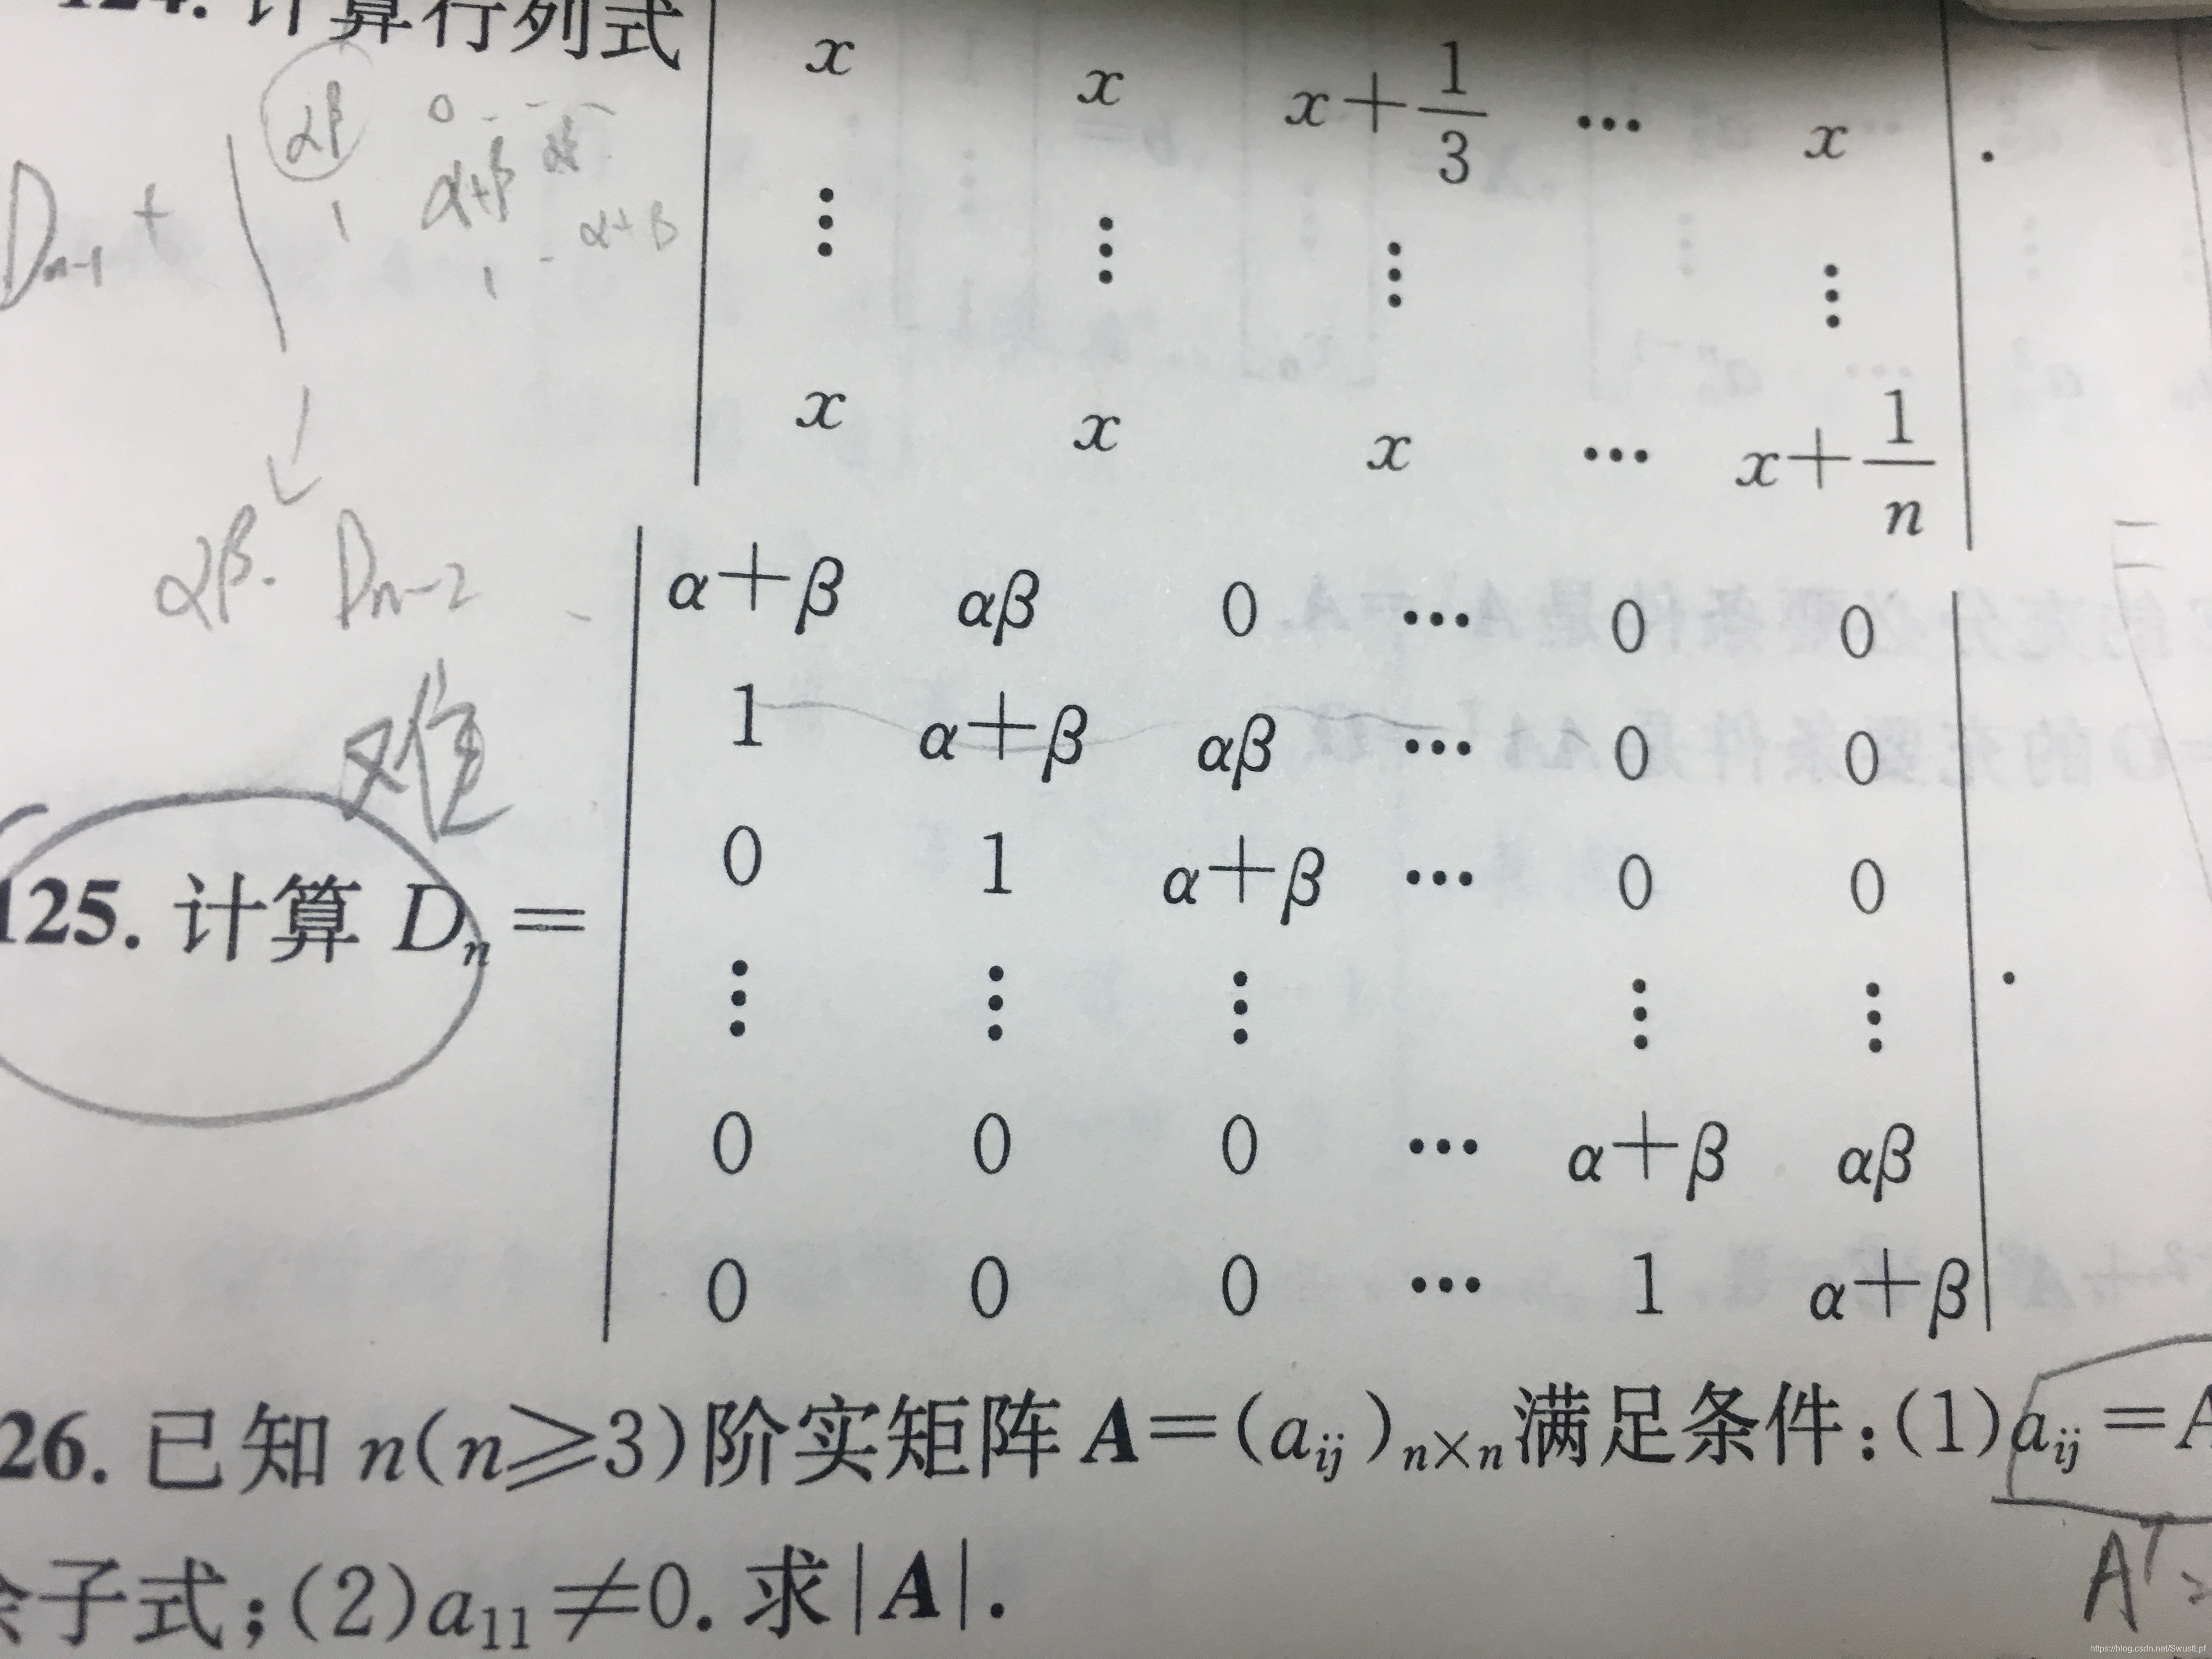 124. 计算行列式
x x x+1/3 ⋯ x .
⋮ ⋮ ⋮ ⋮
x x x ⋯ x+1/n
αβ 0
D_{n-1} + 1 α+β
1 α+β
αβ · D_{n-2}
难
125. 计算 D_n =
α+β αβ 0 ⋯ 0 0
1 α+β αβ ⋯ 0 0
0 1 α+β ⋯ 0 0
⋮ ⋮ ⋮ ⋮ ⋮ .
0 0 0 ⋯ α+β αβ
0 0 0 ⋯ 1 α+β
26. 已知 n(n⩾3)阶实矩阵 A=(a_{ij})_{n×n}满足条件:(1)a_{ij}=A
余子式;(2)a_{11}≠0. 求|A|.
A^T=
https://blog.csdn.net/SwustLpf